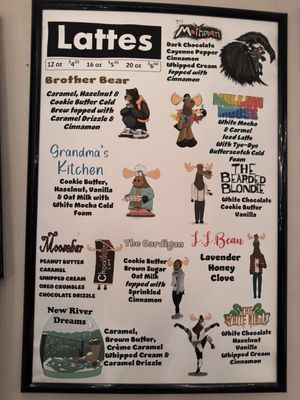 Lattes
12 oz $4.75 16 oz $5.25 20 oz $6.50
THE
Mothman
Dark Chocolate
Cayenne Pepper
Cinnamon
Whipped Cream
topped with
Cinnamon
Brother Bear
Caramel, Hazelnut &
Cookie Butter Cold
Brew topped with
Caramel Drizzle &
Cinnamon
MELLOW
MOOSE
White Mocha
& Carmel
Iced Latte
With Tye-Dye
Butterscotch Cold
Foam
Grandma's
Kitchen
Cookie Butter,
Hazelnut, Vanilla
& Oat Milk with
White Mocha Cold
Foam
THE
BEARDED
BLONDIE
White Chocolate
Cookie Butter
Vanilla
Moosebar
PEANUT BUTTER
CARAMEL
WHIPPED CREAM
OREO CRUMBLES
CHOCOLATE DRIZZLE
The Cardigan
Cookie Butter
Brown Sugar
Oat Milk
topped with
Sprinkled
Cinnamon
L.L.Bean
Lavender
Honey
Clove
New River
Dreams
Caramel,
Brown Butter,
Crème Caramel
Whipped Cream &
Caramel Drizzle
THE
White Chocolate
Hazelnut
Vanilla
Whipped Cream
Cinnamon